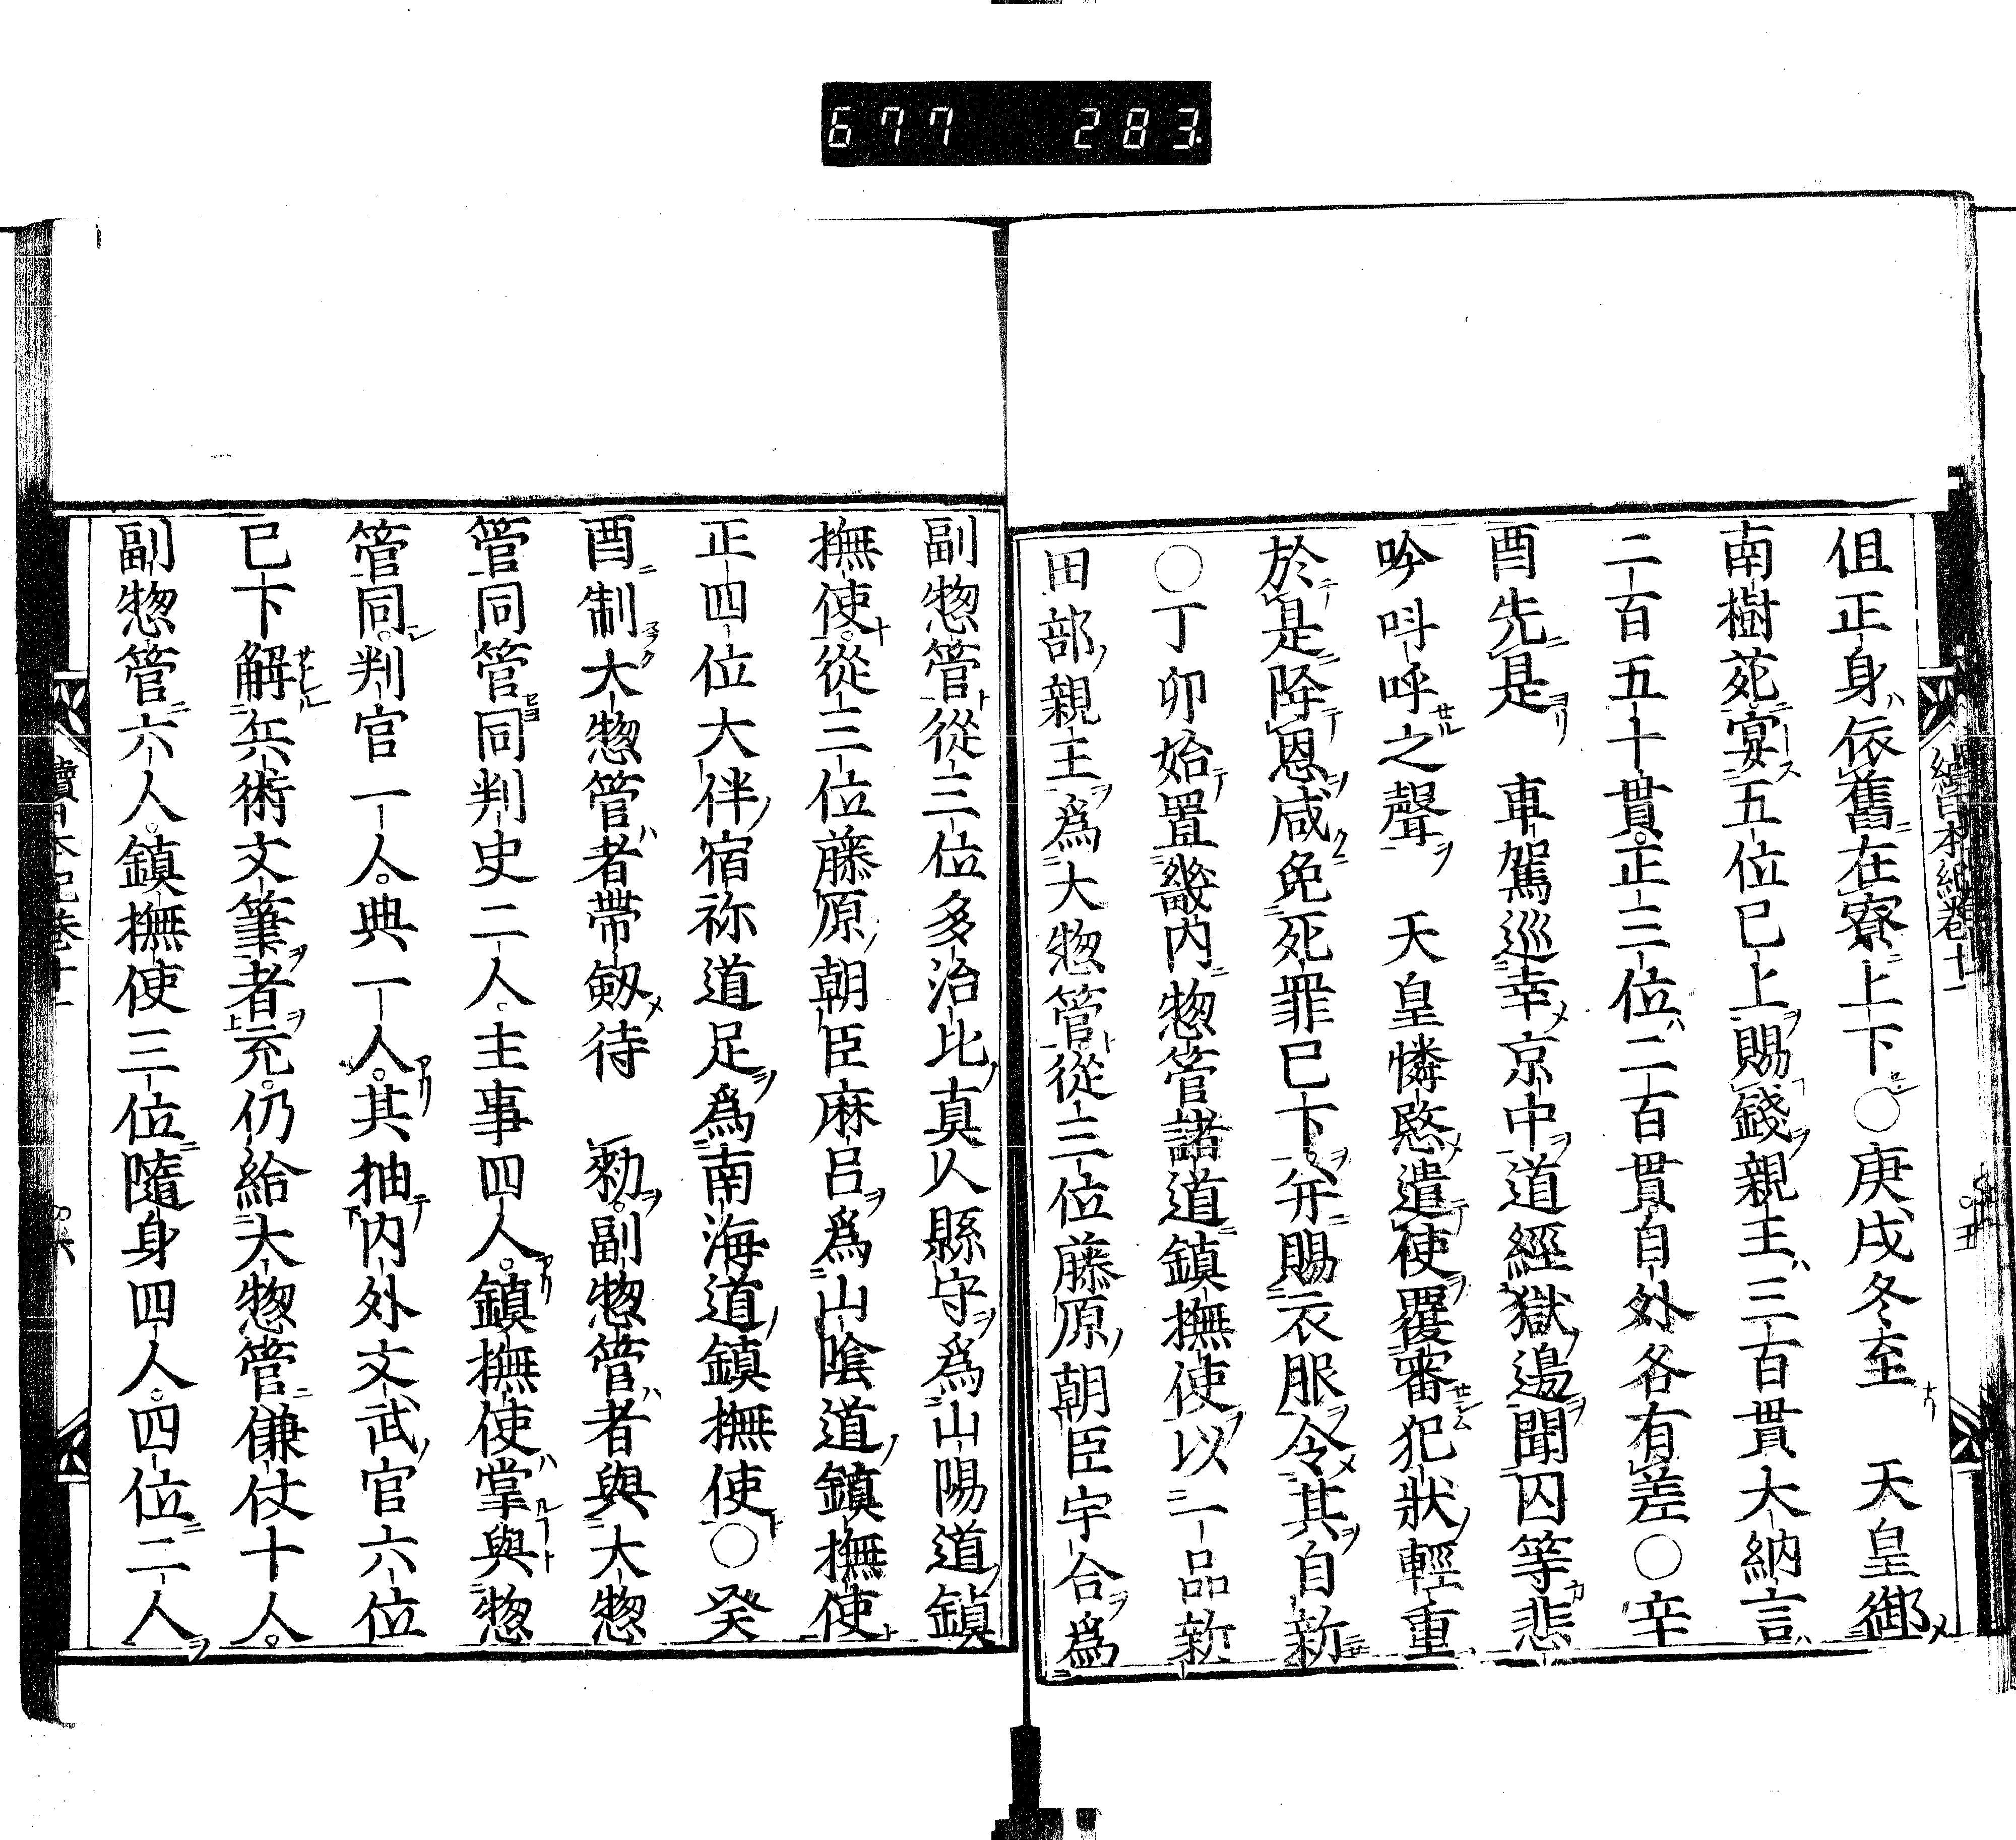 677 283.
但正身依舊在寮上下○庚戌冬至 天皇御
南樹苑宴五位已上賜錢親王三百貫大納言
二百五十貫正三位二百貫自外各有差○辛
酉先是 車駕巡幸京中道經獄邊聞囚等悲
吟呌呼之聲 天皇憐愍遣使覆審犯狀輕重
於是降恩咸免死罪已下并賜衣服令其自新
○丁卯始置畿內惣管諸道鎮撫使以一品新
田部親王爲大惣管從三位藤原朝臣宇合爲
副惣管從三位多治比真人縣守爲山陽道鎮
撫使從三位藤原朝臣麻呂爲山陰道鎮撫使
正四位大伴宿祢道足爲南海道鎮撫使○癸
酉制大惣管者帶劔待 勑副惣管者與大惣
管同管同判史二人主事四人鎮撫使掌與惣
管同判官一人典一人其抽內外文武官六位
已下解兵術文筆者充仍給大惣管傔仗十人
副惣管六人鎮撫使三位隨身四人四位二人
續日本紀卷十一